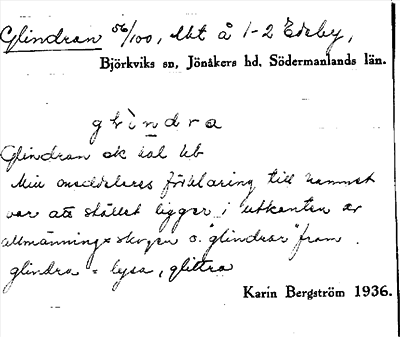 Glindran 56/100, lht å 1-2 Edeby,
Björkviks sn, Jönåkers hd, Södermanlands län.
glìndra
Glindran ek kal lb
Min meddelares förklaring till namnet
var att stället ligger i utkanten av
allmänningsskogen o. "glindrar" fram.
glindra = lysa, glittra
Karin Bergström 1936.